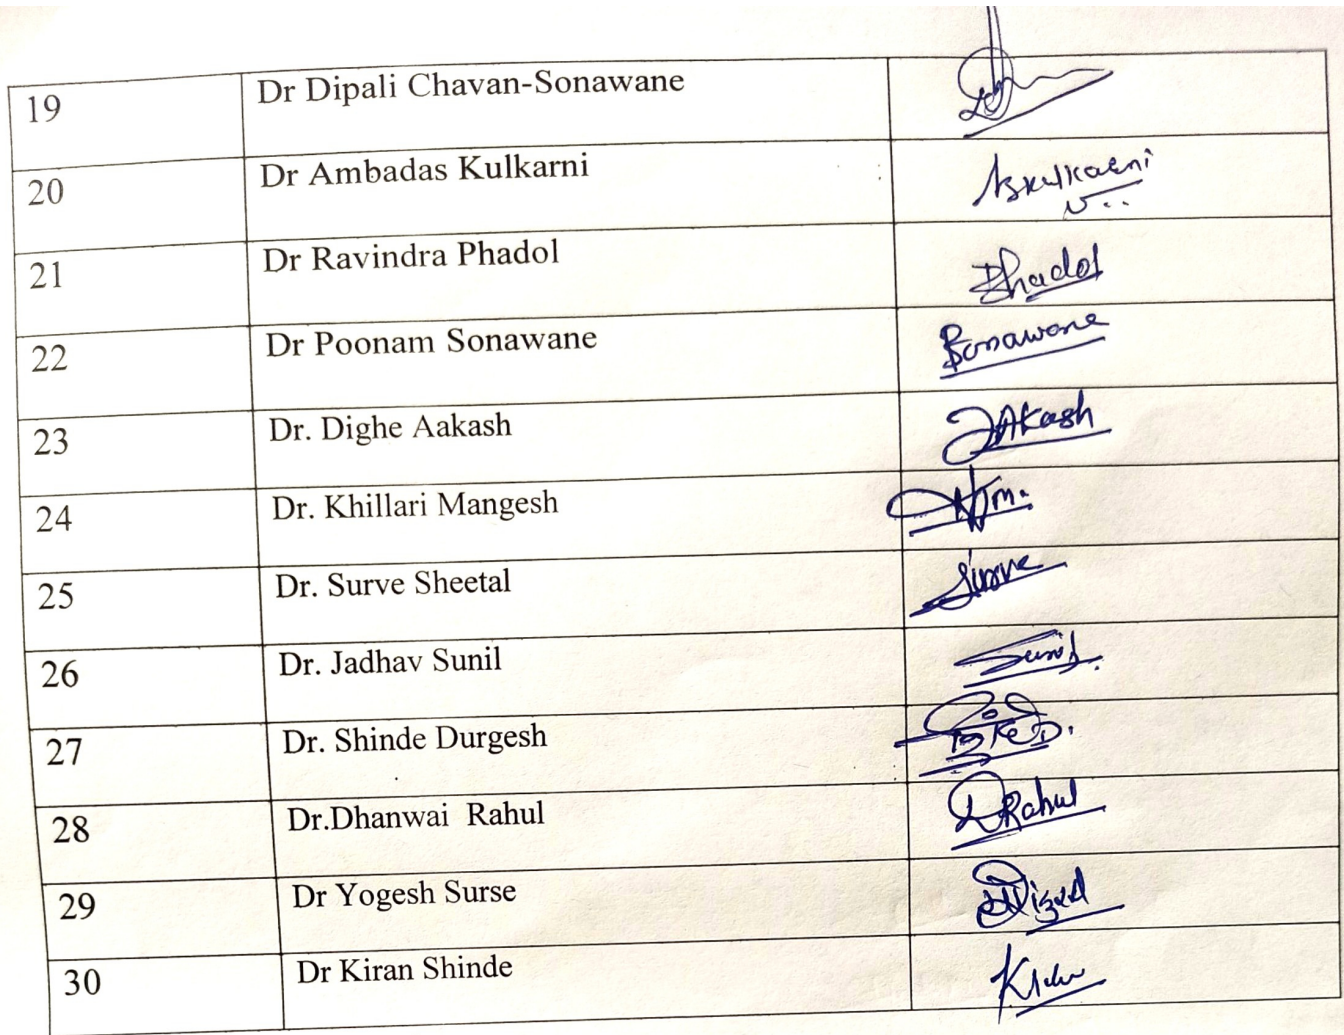 19 Dr Dipali Chavan-Sonawane
20 Dr Ambadas Kulkarni ASKulkarni
21 Dr Ravindra Phadol Phadol
22 Dr Poonam Sonawane Sonawane
23 Dr. Dighe Aakash Akash
24 Dr. Khillari Mangesh
25 Dr. Surve Sheetal Surve
26 Dr. Jadhav Sunil Sunil
27 Dr. Shinde Durgesh
28 Dr.Dhanwai Rahul DRahul
29 Dr Yogesh Surse
30 Dr Kiran Shinde